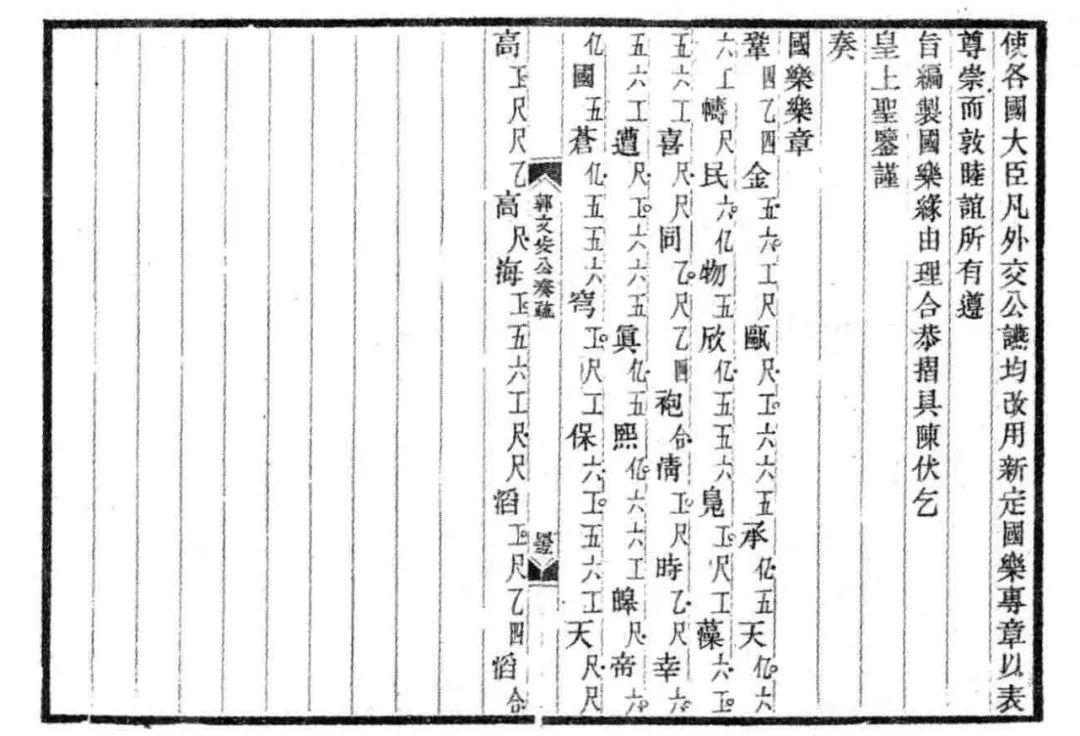 使各國大臣凡外交公讌均改用新定國樂專章以表
尊崇而敦睦誼所有遵
旨編製國樂緣由理合恭摺具陳伏乞
皇上聖鑒謹
奏
國樂樂章
鞏四乙四金五六工尺甌尺工六六五承伬五天伬六
六工幬尺民六伬物五欣伬五五六鳧工尺工藻六工
五六工喜尺尺同乙尺乙四袍合淸工尺時乙尺幸六
五六工遭尺工六六五眞伬五熙伬六六工皞尺帝六
伬國五蒼伬五五六穹工尺工保六工五六工天尺尺
郭文安公奏疏
高工尺尺乙高尺海工五六工尺尺滔工尺乙四滔合